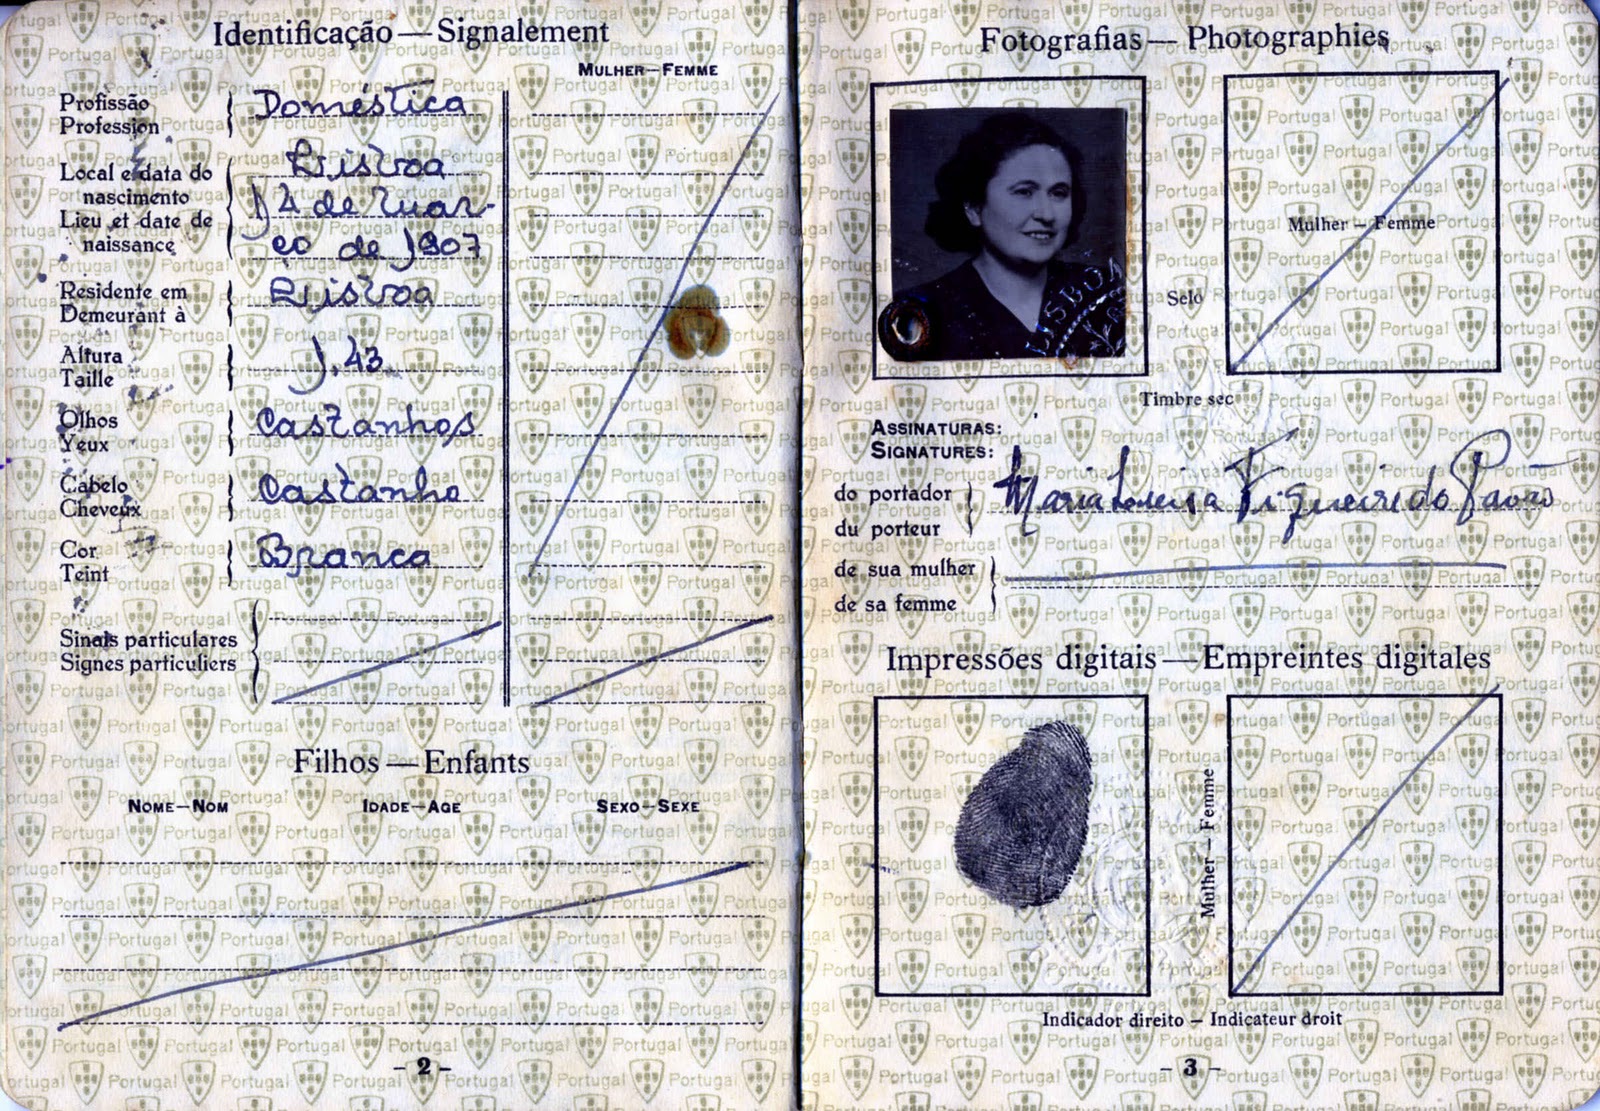 Identificação — Signalement
Mulher — Femme
Profissão
Profession
Doméstica
Local e data do
nascimento
Lieu et date de
naissance
Lisboa
14 de Mar-
ço de 1907
Residente em
Demeurant à
Lisboa
Altura
Taille
1.43
Olhos
Yeux
Castanhos
Cabelo
Cheveux
Castanho
Cor
Teint
Branca
Sinais particulares
Signes particuliers
Filhos — Enfants
Nome — Nom Idade — Age Sexo — Sexe
- 2 -
Fotografias — Photographies
LISBOA
Selo
Mulher — Femme
Timbre sec
Assinaturas:
Signatures:
do portador
du porteur
Maria Luisa Figueiredo Pavão
de sua mulher
de sa femme
Impressões digitais — Empreintes digitales
Mulher — Femme
Indicador direito — Indicateur droit
- 3 -
Portugal